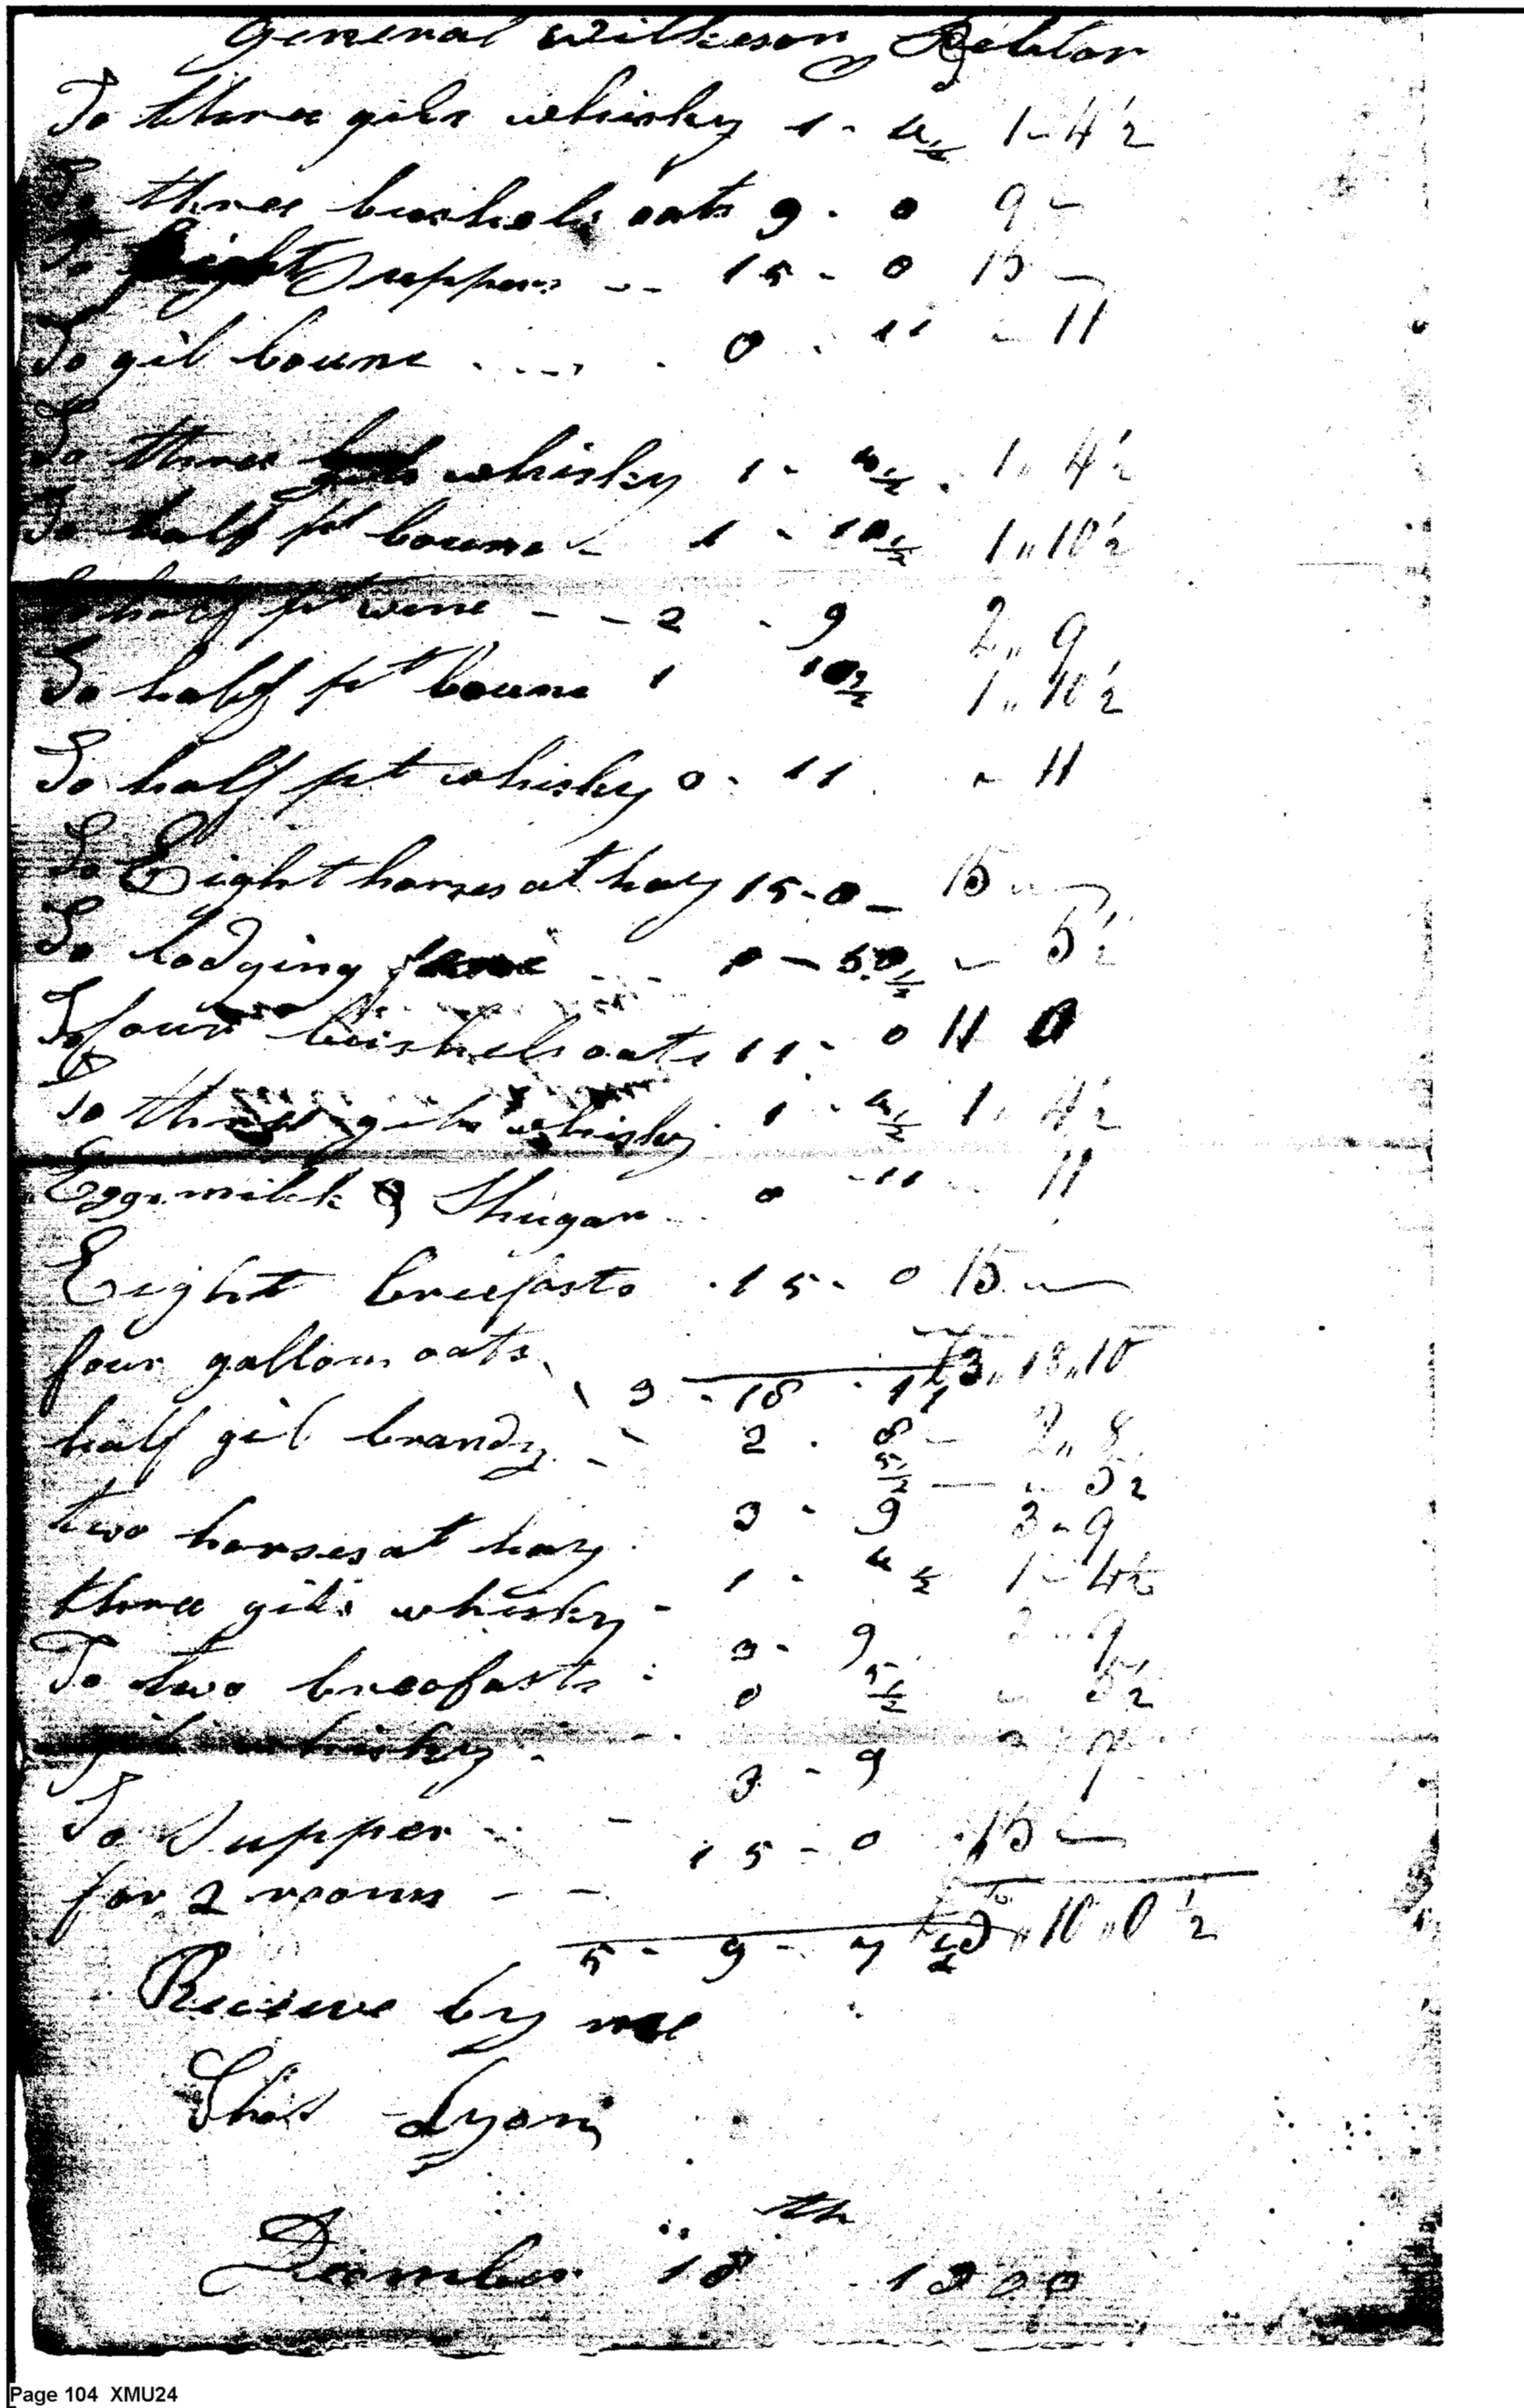 General Wilkeson Debtor
To three gils whisky 1 - 4½ 1 - 4½
To three bushels oats 9 - 0 9 -
To Eight suppers -- 15 - 0 15 -
To gil boune .... 0 - 11 - 11
To three gils whisky 1 - 4½ 1 " 4½
To half pt boune - 1 - 10½ 1 " 10½
To half pt wine - - 2 - 9 2 " 9
To half pt boune 1 10½ 1 " 10½
To half pt whisky 0 - 11 - 11
To Eight horses at hay 15 - 0 - 15 "
To lodging - 5½
To four bushels oats 11 - 0 11 0
To three gils whisky 1 - 4½ 1 " 4½
Eggs milk & Shugar 0 - 11 - 11
Eight breefasts 15 - 0 15 "
four gallons oats £3 " 18 " 10
3 - 18 - 11
half gil brandy - 2 - 8 - 2 " 8
5½ — " 5½
two horses at hay 3 - 9 3 - 9
three gils whisky - 1 - 4½ 1 - 4½
To two breafasts 3 - 9 3 - 9
gil whisky - 0 5½ " 5½
To Supper - 3 - 9 3
for 2 rooms - - 15 - 0 15 -
5 - 9 - 7 ½ " 10 " 0 ½
Receive by me
Lyons
December 18th 1800
Page 104 XMU24